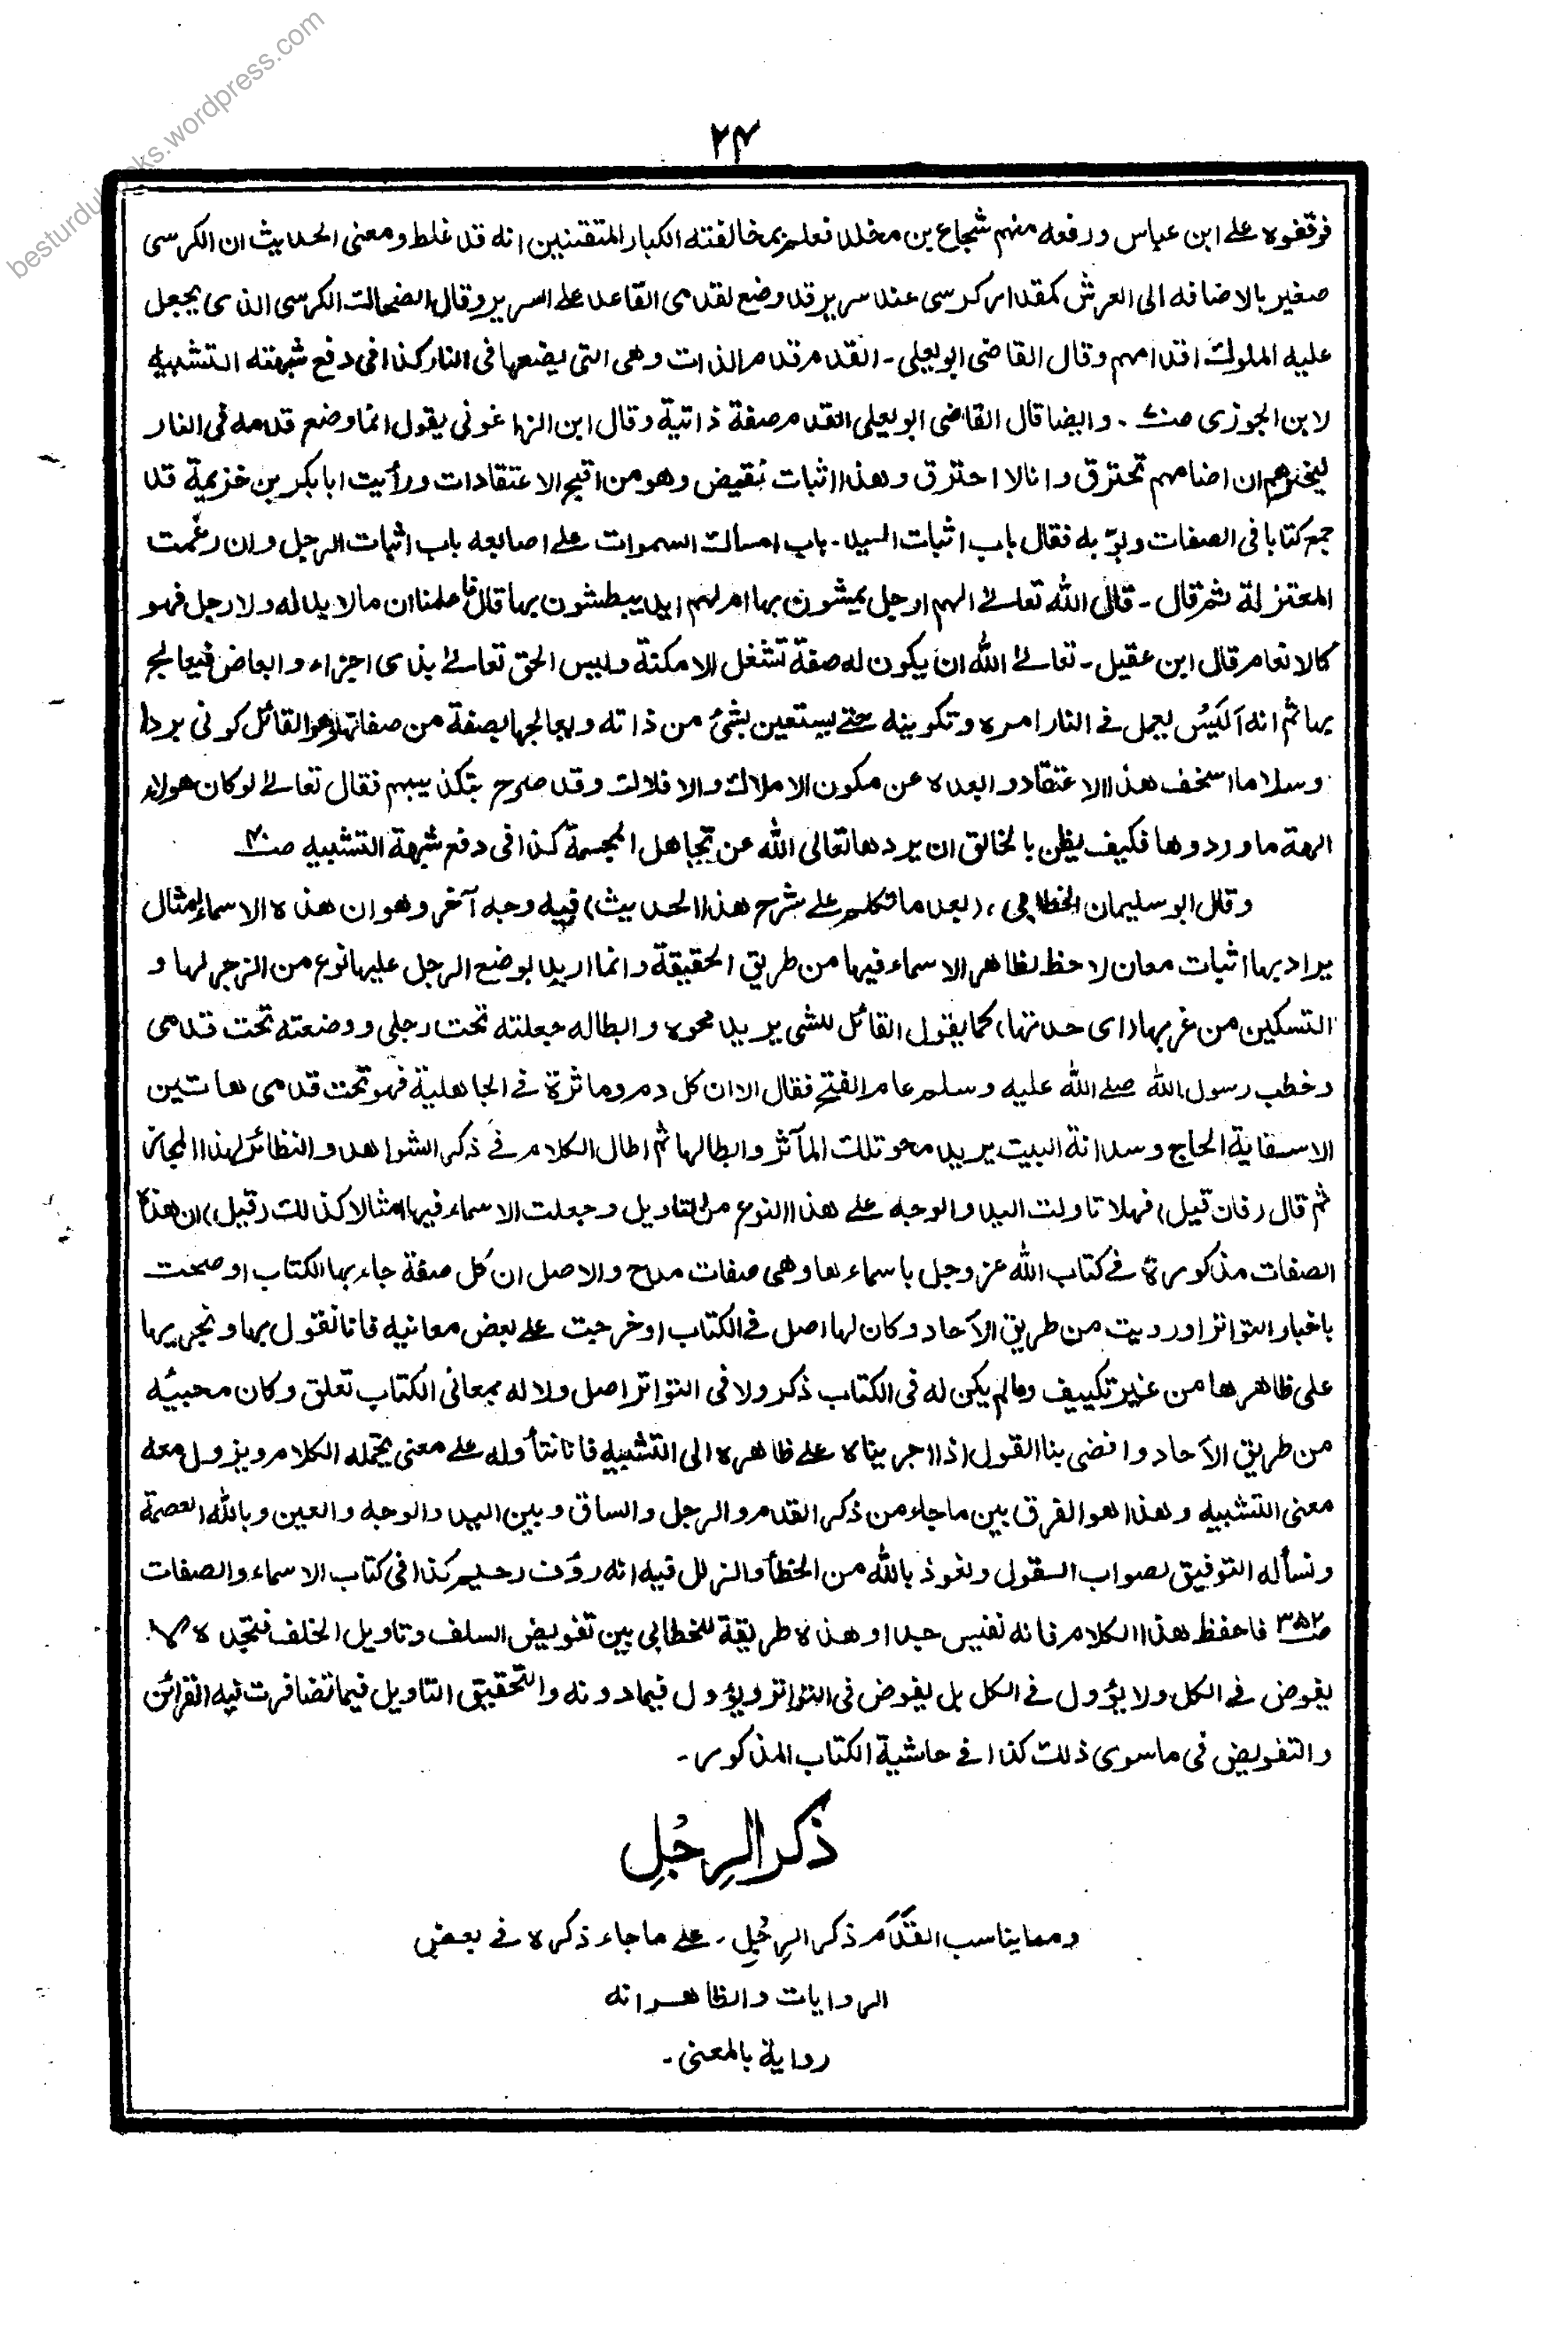 besturdubooks.wordpress.com
۲۴
فوقفوه على ابن عباس ورفعه منهم شجاع بن مخلد فعلم بمخالفته الكبار المتقنين انه قد غلط ومعنى الحديث ان الكرسى
صغير بالاضافه الى العرش كمقدار كرسى عند سرير قد وضع لقدمى القاعد على السرير وقال الضحاك الكرسى الذى يجعل
عليه الملوك اقدامهم وقال القاضى ابو يعلى - القدم قدم الذات وهى التى يضعها فى النار كذا فى دفع شبهته التشبيه
لابن الجوزى - وايضا قال القاضى ابو يعلى القدم صفة ذاتية وقال ابن الزاغونى يقول انما وضع قدمه فى النار
ليخبرهم ان اصنامهم تحترق وانا لا احترق وهذا اثبات تبعيض وهو من اقبح الاعتقادات ورأيت ابا بكر بن خزيمة قد
جمع كتابا فى الصفات وبوّبه فقال باب اثبات اليد - باب امساك السموات على اصابعه باب اثبات الرجل وان رغمت
المعتزلة ثم قال - قال الله تعالى الهم ارجل يمشون بها ام لهم ايد يبطشون بها قال فاعلمنا ان مالا يد له ولا رجل فهو
كالانعام قال ابن عقيل - تعالى الله ان يكون له صفة تشغل الامكنة وليس الحق تعالى بذى اجزاء وابعاض فيعالج
بها ثم انه اَلَيسُ يعمل فى النار امره وتكوينه حتى يستعين بشئ من ذاته ويعالجها بصفة من صفاته وهو القائل كونى بردا
وسلاما اسخف هذا الاعتقاد وابعده عن مكون الاملاك والافلاك وقد صرح بتكذيبهم فقال تعالى لوكان هولاء
الهة ما وردوها فكيف يظن بالخالق ان يردها تعالى الله عن تجاهل المجسمة كذا فى دفع شبهة التشبيه
وقال ابو سليمان الخطابى، (بعد ما تكلم على شرح هذا الحديث) فيه وجه آخر وهو ان هذه الاسماء امثال
يراد بها اثبات معان لاحظ لظاهر الاسماء فيها من طريق الحقيقة وانما اريد بوضع الرجل عليها نوع من الزجر لها و
التسكين من غربها (اى حدتها) كما يقول القائل للشى يريد محوه وابطاله جعلته تحت رجلى ووضعته تحت قدمى
وخطب رسول الله صلى الله عليه وسلم عام الفتح فقال الا ان كل دم وماثرة فى الجاهلية فهو تحت قدمى هاتين
الا سقاية الحاج وسدانة البيت يريد محو تلك المآثر وابطالها ثم اطال الكلام فى ذكر الشواهد والنظائر لهذا المجاز
ثم قال (فان قيل) فهلا تاولت اليد والوجه على هذا النوع من التاويل وجعلت الاسماء فيها امثالا كذلك (قيل) ان هذه
الصفات مذكورة فى كتاب الله عز وجل باسماءها وهى صفات مدح والاصل ان كل صفة جاء بها الكتاب او صحت
باخبار التواتر او رويت من طريق الآحاد وكان لها اصل فى الكتاب او خرجت على بعض معانيه فانا نقول بها ونجريها
على ظاهرها من غير تكييف وما لم يكن له فى الكتاب ذكر ولا فى التواتر اصل ولا له بمعانى الكتاب تعلق وكان مجيئه
من طريق الآحاد وافضى بنا القول اذا اجريناه على ظاهره الى التشبيه فانا نتأوله على معنى يحتمله الكلام ويزول معه
معنى التشبيه وهذا هو الفرق بين ما جاء من ذكر القدم والرجل والساق وبين اليد والوجه والعين وبالله العصمة
ونسأله التوفيق لصواب القول ونعوذ بالله من الخطأ والزلل فيه انه رؤف رحيم كذا فى كتاب الاسماء والصفات
صـ۳۵۲ فاحفظ هذا الكلام فانه نفيس جدا وهذه طريقة للخطابى بين تفويض السلف وتاويل الخلف فتجده لا
يفوض فى الكل ولا يؤول فى الكل بل يفوض فى التواتر ويؤول فيما دونه والتحقيق التاويل فيما تضافرت فيه القرائن
والتفويض فى ماسوى ذلك كذا فى حاشية الكتاب المذكور-
ذكر الرِجُلِ
ومما يناسب القَدَم ذكر الرِجُلِ - على ما جاء ذكره فى بعض
الروايات والظاهر انه
رواية بالمعنى -